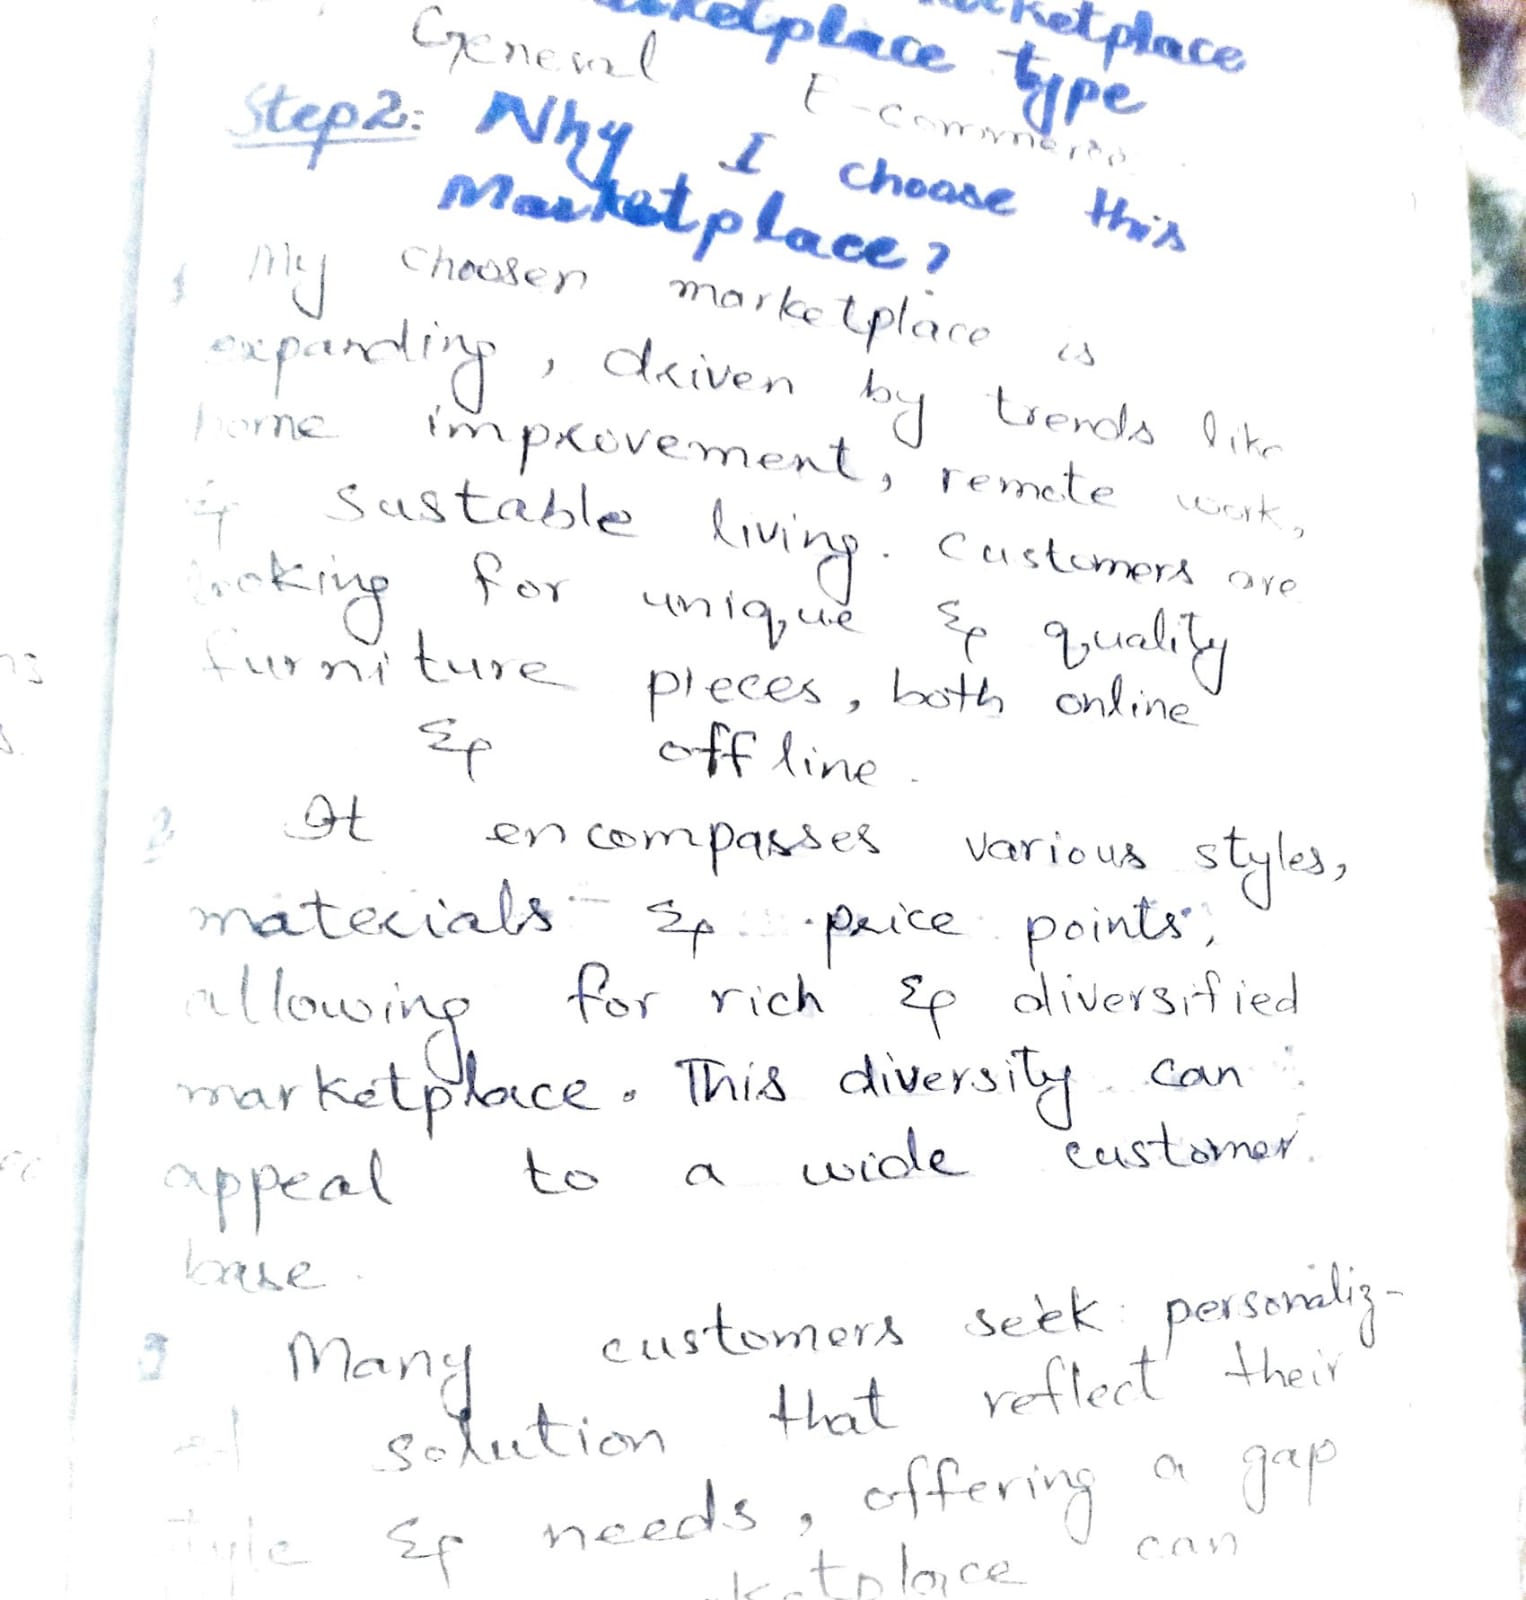 Marketplace
Marketplace type
General E-Commerce
Step2: Why I choose this
Marketplace?
1 My choosen marketplace is
expanding, driven by trends like
home improvement, remote work,
& sustable living. Customers are
looking for unique & quality
furniture pieces, both online
& offline.
2 It encompasses various styles,
materials & price points,
allowing for rich & diversified
marketplace. This diversity can
appeal to a wide customer
base.
3 Many customers seek personaliz-
ed solution that reflect their
style & needs, offering a gap
can